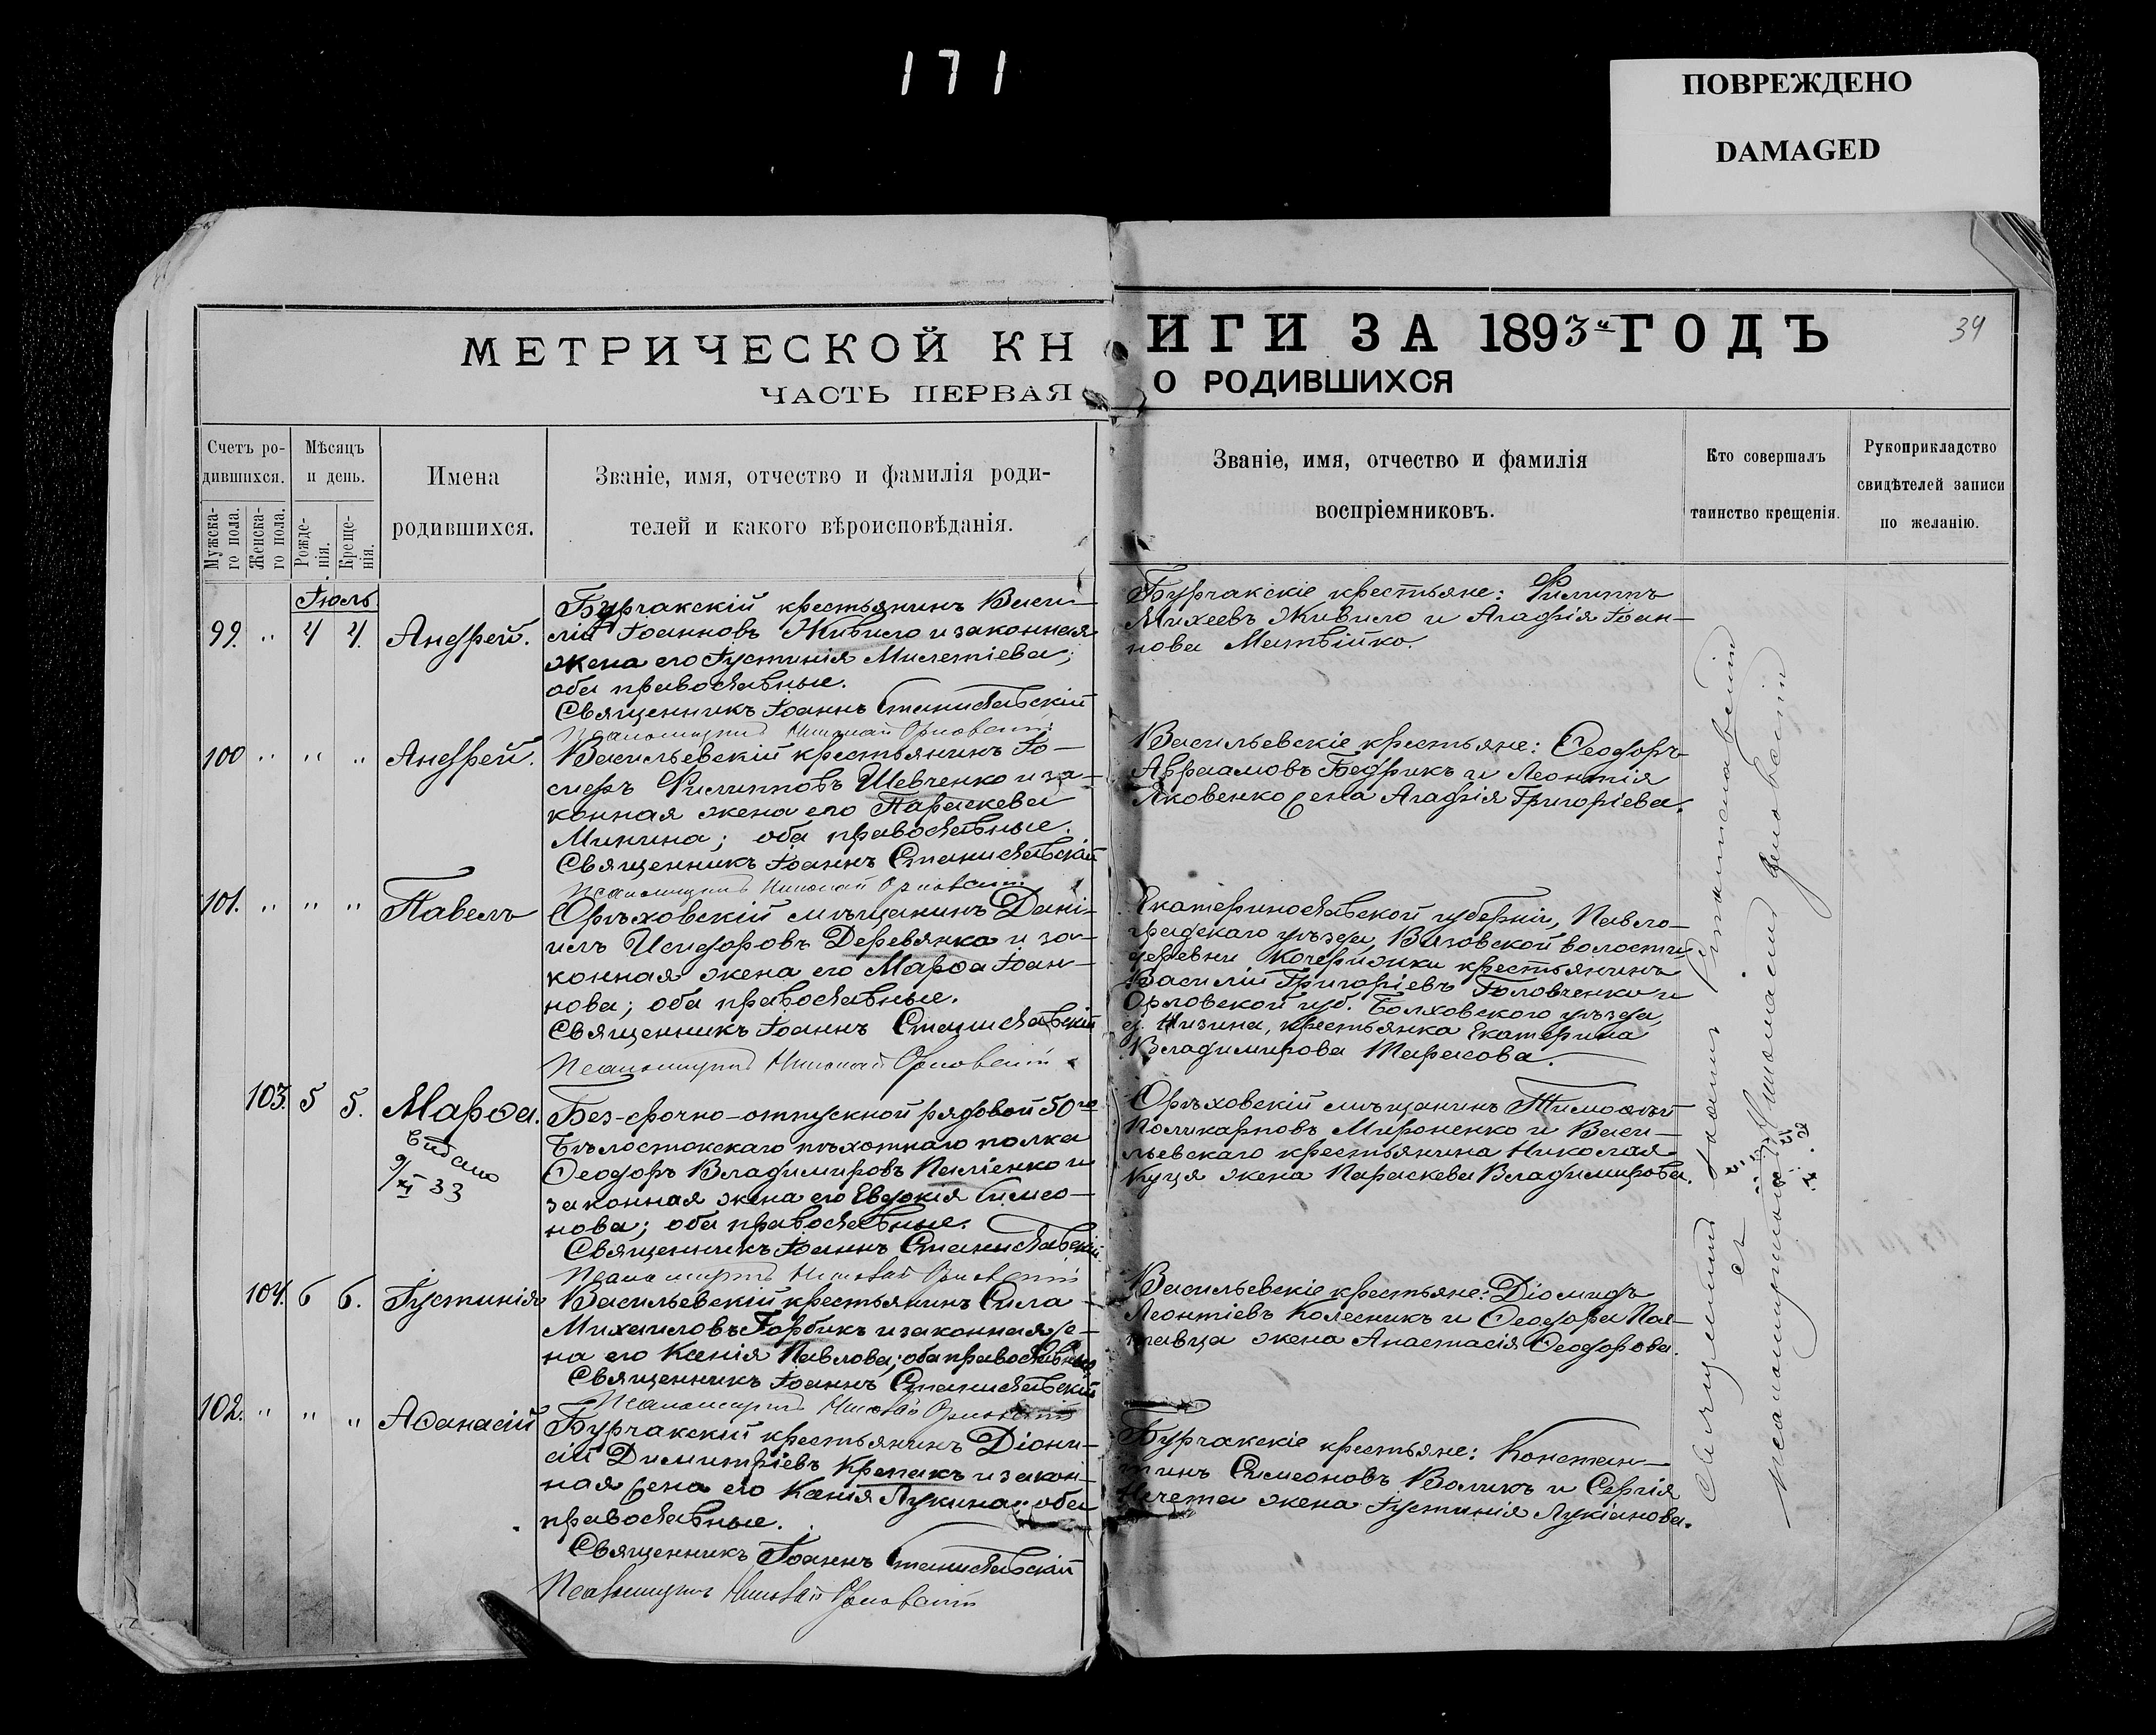 171
ПОВРЕЖДЕНО
DAMAGED
МЕТРИЧЕСКОЙ КНИГИ ЗА 1893й ГОДЪ
34
ЧАСТЬ ПЕРВАЯ О РОДИВШИХСЯ
Счетъ ро-
дившихся.
Мужска-
го пола.
Женска-
го пола.
Мѣсяцъ
и день.
Рожде-
нія.
Креще-
нія.
Имена
родившихся.
Званіе, имя, отчество и фамилія роди-
телей и какого вѣроисповѣданія.
Званіе, имя, отчество и фамилія
воспріемниковъ.
Кто совершалъ
таинство крещенія.
Рукоприкладство
свидѣтелей записи
по желанію.
Іюль
99. " 4 4. Андрей.
Бурчакскій крестьянинъ Васи-
лій Іоанновъ Живило и законная
жена его Іустинія Милетіева;
оба православные.
Священникъ Іоаннъ Станиславскій
Псаломщикъ Николай Орловскій
Бурчакскіе крестьяне: Филиппъ
Михеевъ Живило и Агафія Іоан-
нова Матвійко.
100 " " " Андрей.
Васильевскій крестьянинъ Іо-
сифъ Филипповъ Шевченко и за-
конная жена его Параскева
Минина; оба православные.
Священникъ Іоаннъ Станиславскій
Псаломщикъ Николай Орловскій
Васильевскіе крестьяне: Ѳеодоръ
Авраамовъ Бедрикъ и Леонтія
Яковенко жена Агафія Григоріева.
101. " " " Павелъ
Орѣховскій мѣщанинъ Дані-
илъ Исидоровъ Деревянка и за-
конная жена его Марѳа Іоан-
нова; оба православные.
Священникъ Іоаннъ Станиславскій
Псаломщикъ Николай Орловскій
Екатеринославской губерніи, Павло-
градскаго уѣзда, Вязовской волости
деревни Кочерижки крестьянинъ
Василій Григоріевъ Головченко и
Орловской губ. Болховского уѣзда,
д. Низина, крестьянка Екатерина
Владимирова Тарасова.
103. 5 5. Марѳа.
видано
9/XI 33
Без-срочно-отпускной рядовой 50го
Бѣлостокскаго пѣхотнаго полка
Ѳеодоръ Владимировъ Паліенко и
законная жена его Евдокія Симео-
нова; оба православные.
Священникъ Іоаннъ Станиславскій
Псаломщикъ Николай Орловскій
Орѣховскій мѣщанинъ Тимоѳей
Поликарповъ Мироненко и Васи-
льевскаго крестьянина Николая
Куця жена Параскева Владимирова.
104. 6 6. Іустинія
Васильевскій крестьянинъ Сила
Михаиловъ Горбикъ и законная же-
на его Ксенія Павлова; оба православные
Священникъ Іоаннъ Станиславскій
Псаломщикъ Николай Орловскій
Васильевскіе крестьяне: Діомидъ
Леонтіевъ Колесникъ и Ѳеодора Пол-
тавца жена Анастасія Ѳеодорова.
102. " " " Аѳанасій
Бурчакскій крестьянинъ Діони-
сій Димитріевъ Крепакъ и закон-
ная жена его Ксенія Лукина; оба
православные.
Священникъ Іоаннъ Станиславскій
Псаломщикъ Николай Орловскій
Бурчакскіе крестьяне: Констан-
тинъ Симеоновъ Воликъ и Сергія
жена Іустинія Лукіанова.
Священникъ Іоаннъ Станиславскій
съ
псаломщикомъ Николаемъ Орловскимъ